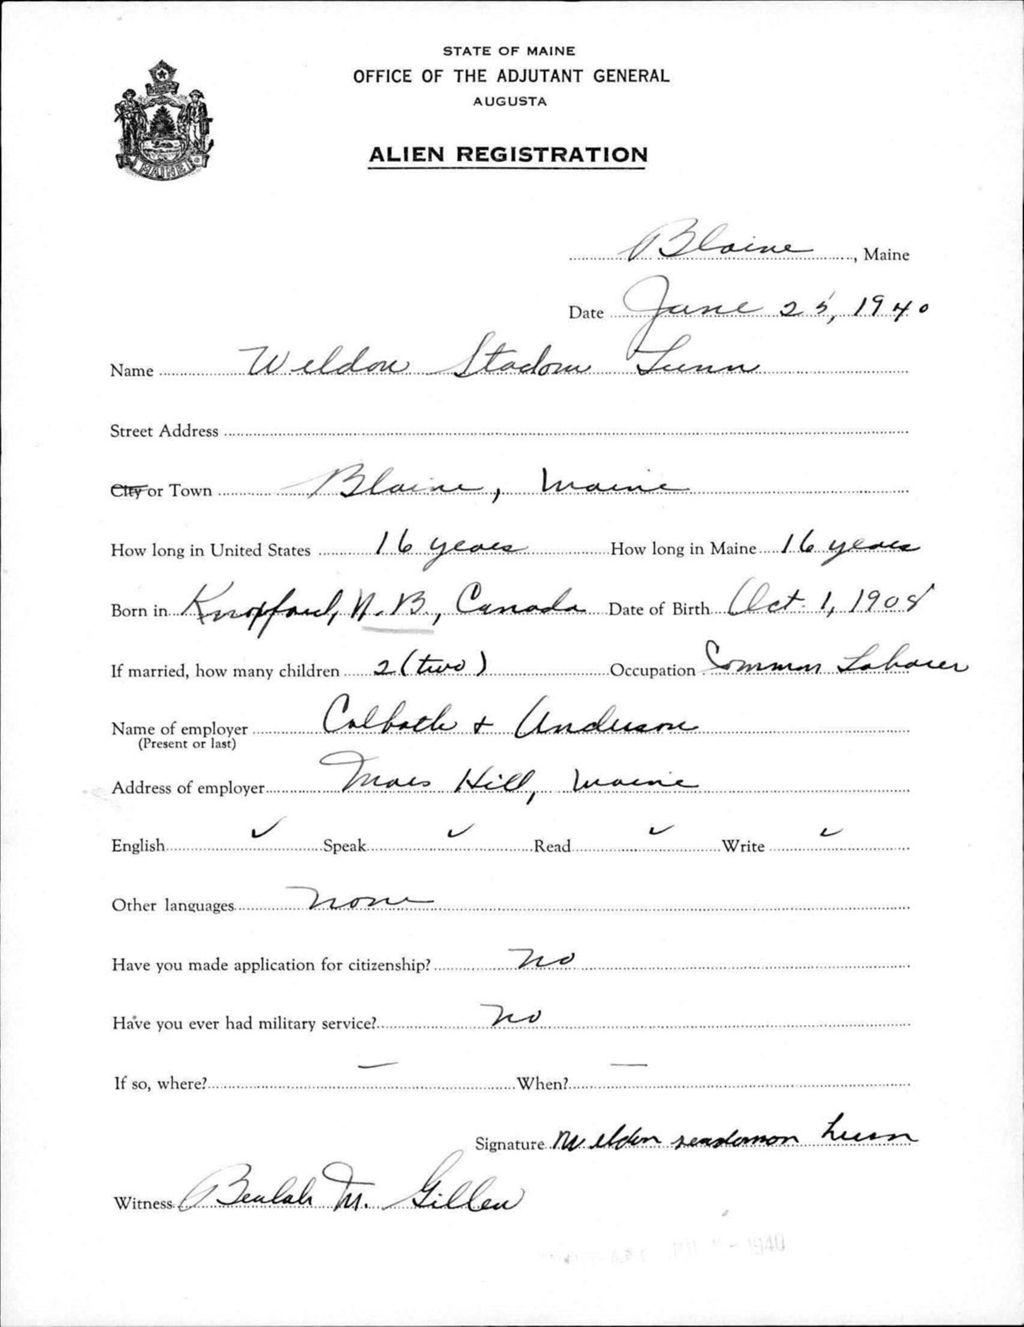 STATE OF MAINE
OFFICE OF THE ADJUTANT GENERAL
AUGUSTA
ALIEN REGISTRATION
Blaine, Maine
Date June 25, 1940
Name Weldon Stadom Lunn
Street Address
City or Town Blaine, Maine
How long in United States 16 years How long in Maine 16 years
Born in Knoxford, N.B., Canada Date of Birth Oct. 1, 1908
If married, how many children 2 (two) Occupation Common Laborer
Name of employer Colbath + Anderson
(Present or last)
Address of employer Mars Hill, Maine
English ✓ Speak ✓ Read ✓ Write ✓
Other languages none
Have you made application for citizenship? No
Have you ever had military service? No
If so, where? — When? —
Signature Weldon Lunn
Witness Beulah M. Gillen
1940
MAINE